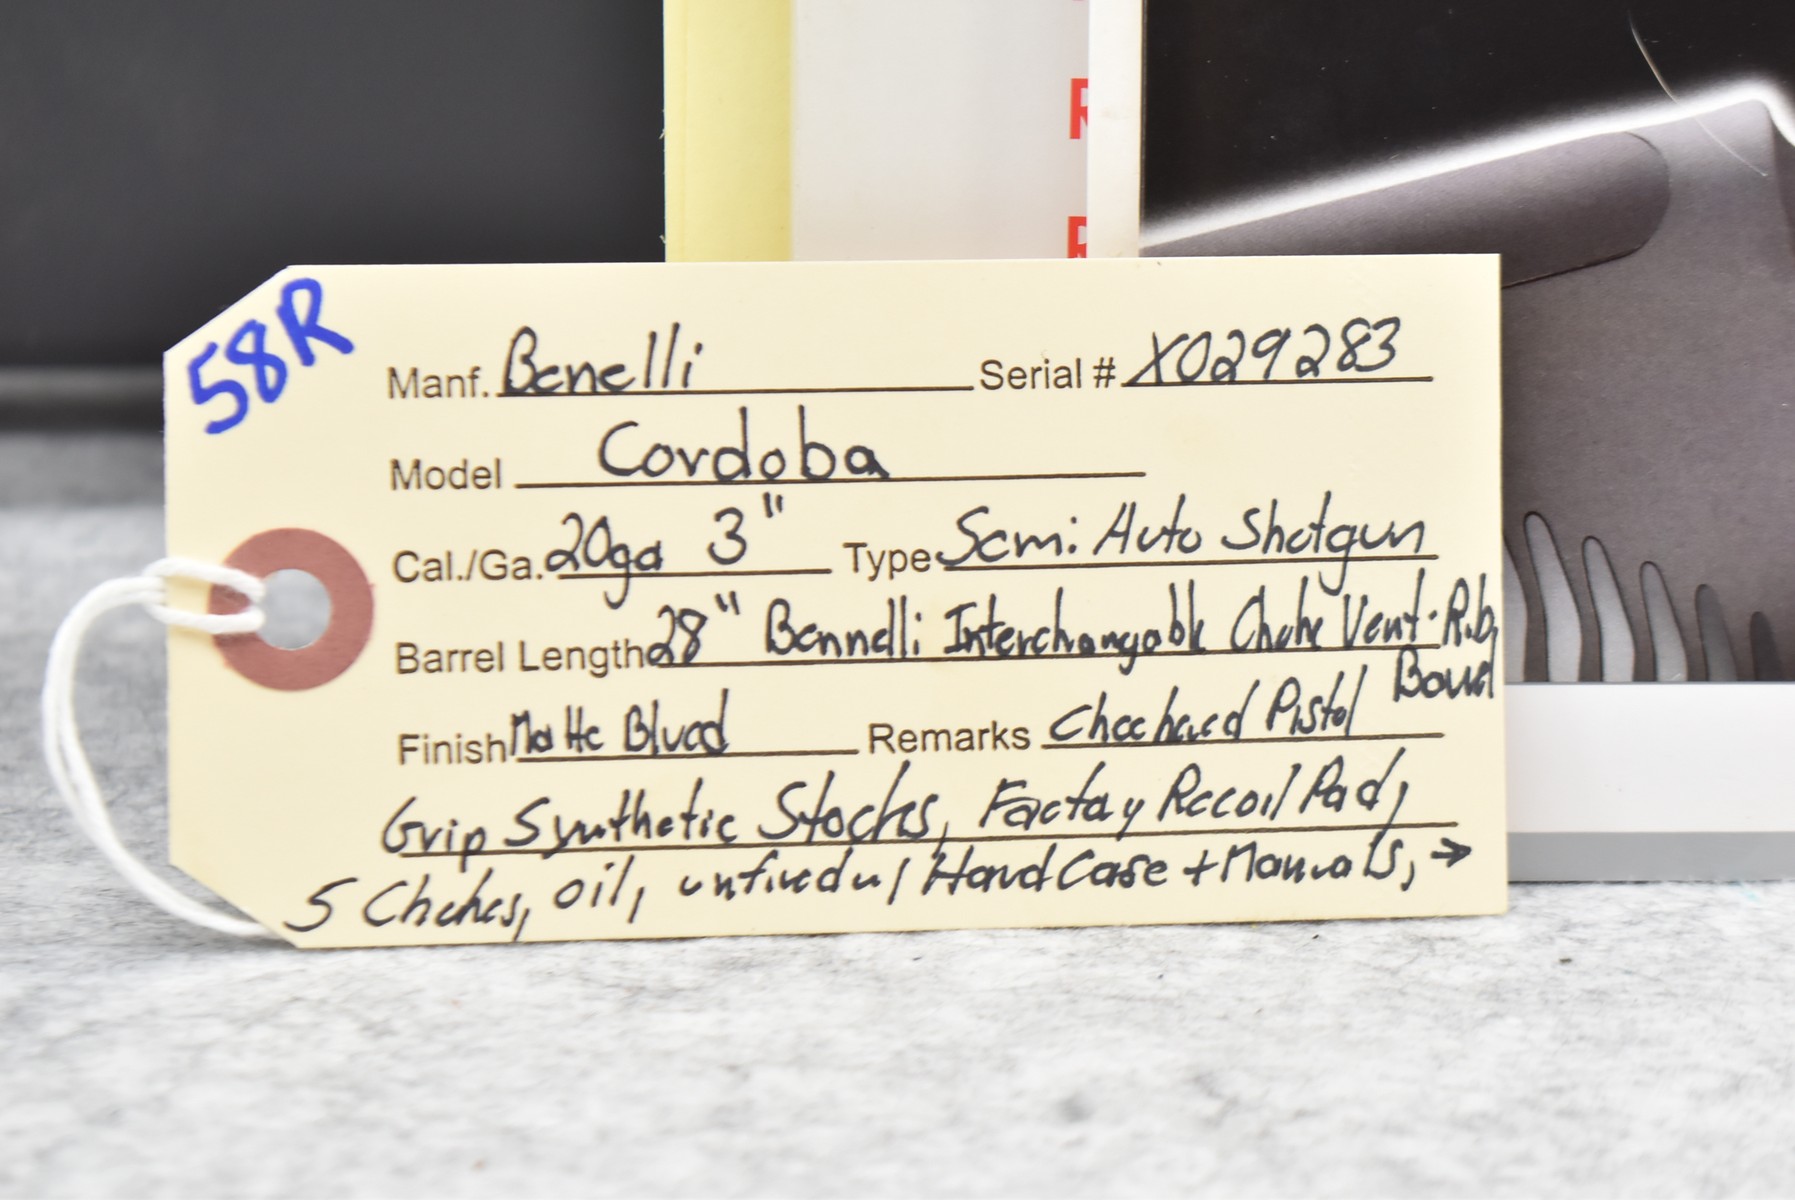 R
R
58R
Manf. Benelli Serial # X029283
Model Cordoba
Cal./Ga. 20ga 3" Type Semi Auto Shotgun
Barrel Length 28" Bennelli Interchangable Choke Vent-Rib,
Bowed
Finish Matte Blued Remarks Checkered Pistol
Grip Synthetic Stocks, Factory Recoil Pad,
5 Chokes, oil, unfired w/ Hard Case + Manuals, →